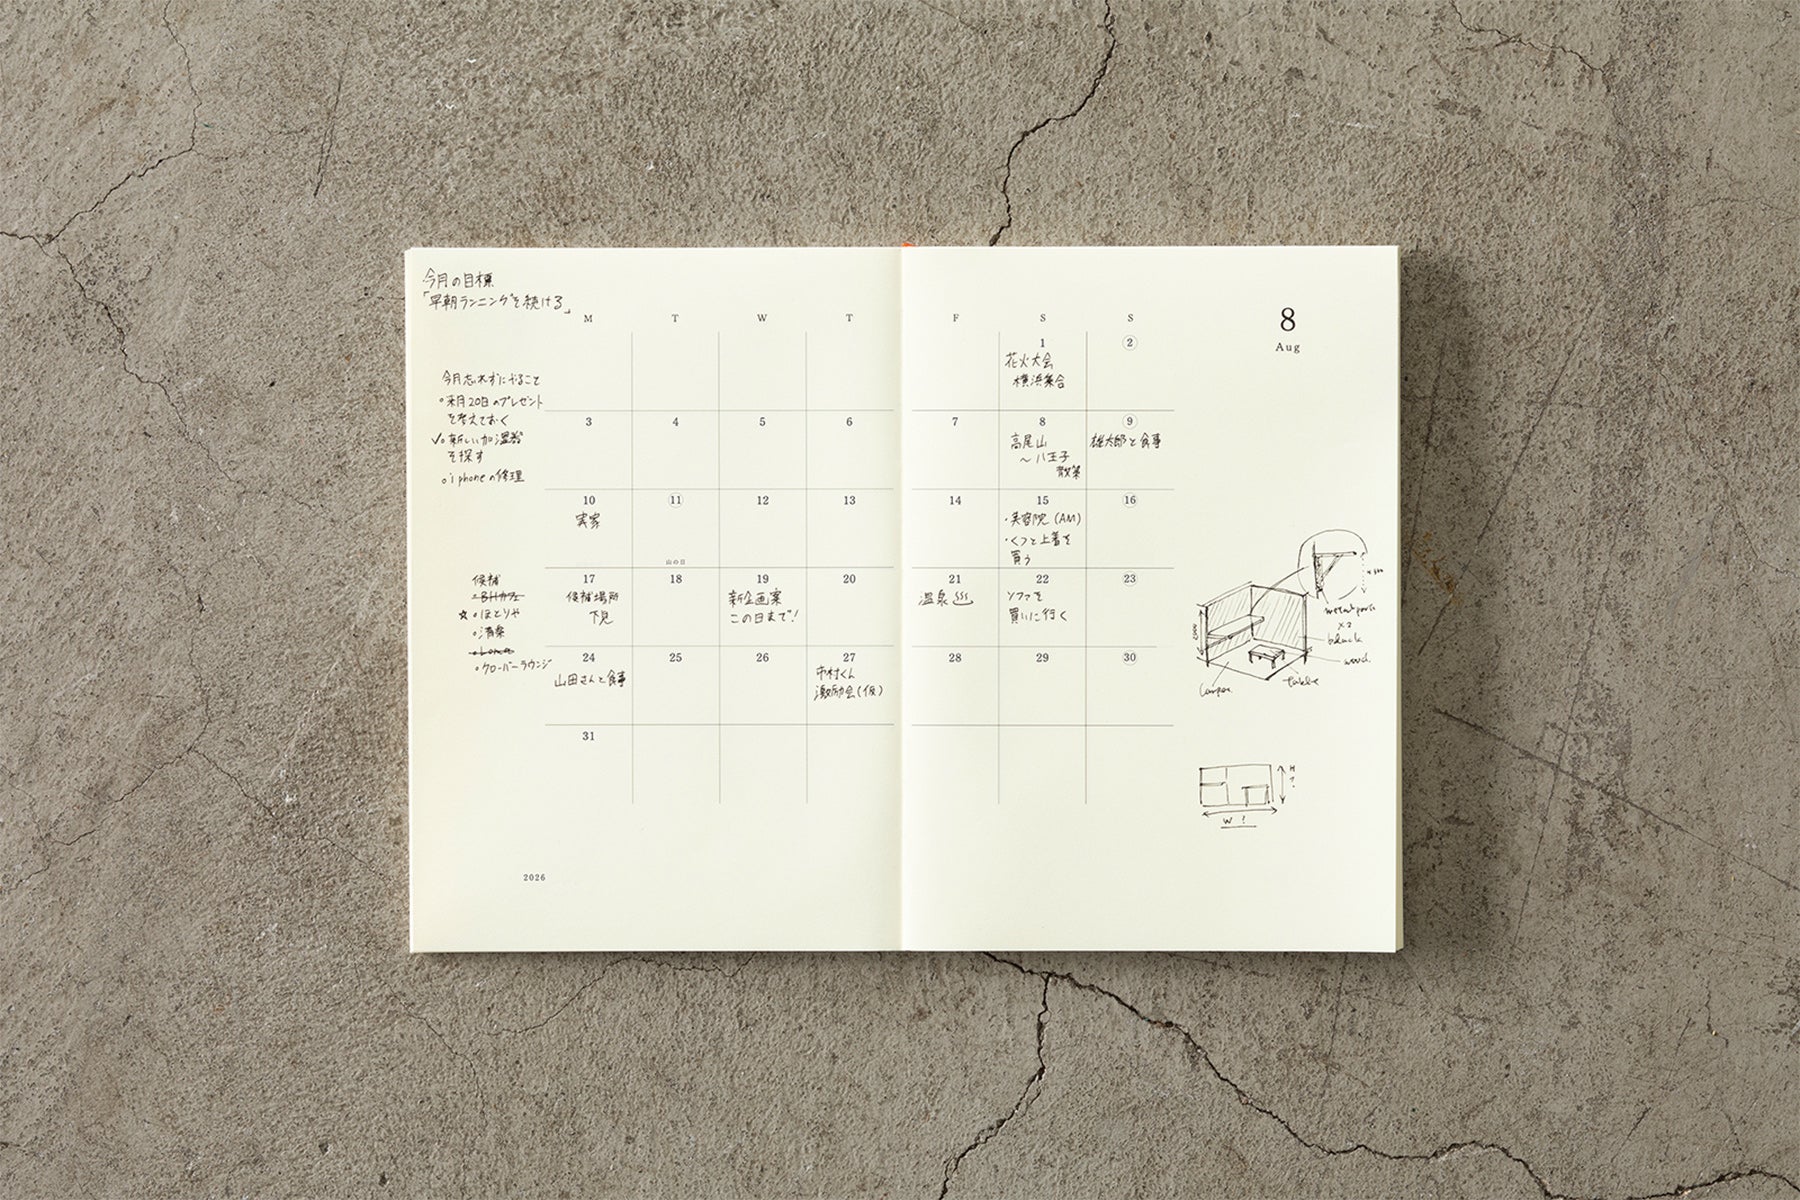 今月の目標
「早朝ランニングを続ける」
今月忘れずにやること
○来月20日のプレゼント
を考えておく
✓○新しい加湿器
を探す
○iphoneの修理
候補
○BHカフェ
☆○ほとりや
○清楽
○クローバーラウンジ
M T W T F S S
8
Aug
1 2
花火大会
横浜集合
3 4 5 6 7 8 9
高尾山
〜八王子
散策
雄太郎と食事
10 11 12 13 14 15 16
実家
山の日
・美容院(AM)
・くつと上着を
買う
17 18 19 20 21 22 23
候補場所
下見
新企画案
この日まで!
温泉
ソファを
買いに行く
24 25 26 27 28 29 30
山田さんと食事
中村くん
激励会(仮)
31
×2
black
wood.
table
H
?
W ?
2026